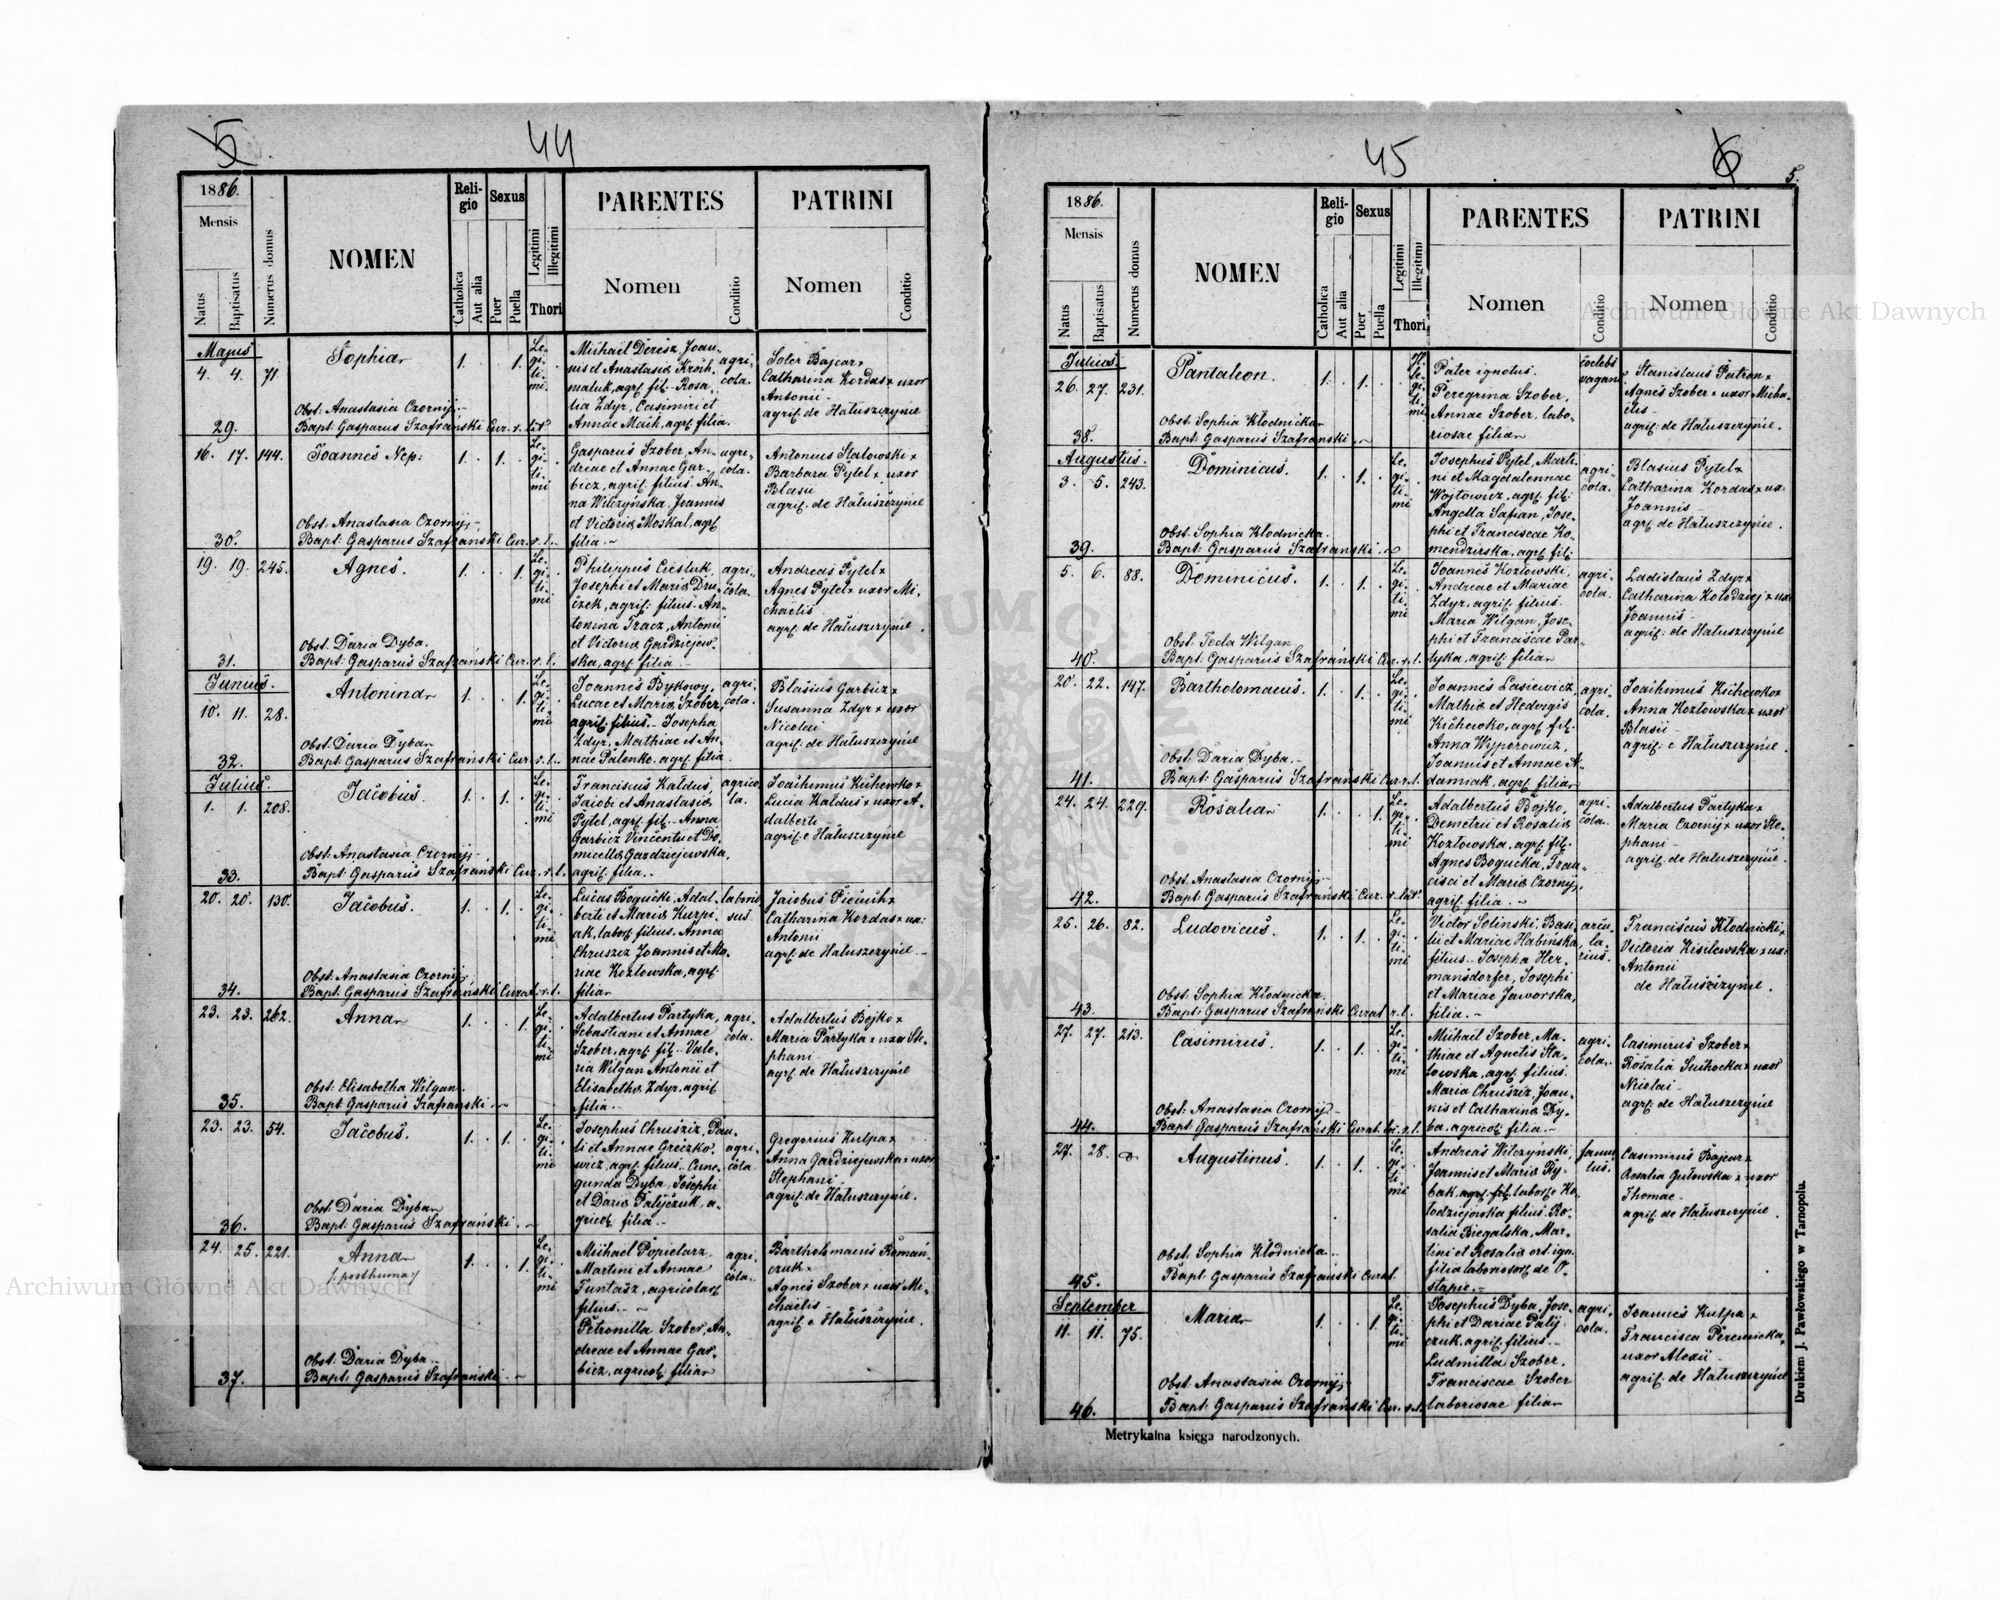 5
44
1886.
Mensis
Natus
Baptisatus
Numerus domus
NOMEN
Reli-
gio
Catholica
Aut alia
Sexus
Puer
Puella
Legitimi
Illegitimi
Thori
PARENTES
Nomen
Conditio
PATRINI
Nomen
Conditio
Majus
4. 4. 71
Sophia
1. . . 1.
Le-
gi-
ti-
mi
Michael Deresz, Joan-
nis et Anastasiæ Kroch-
maluk, agrĭ. fil. Rosa-
lia Zdyr, Casimiri et
Annae Maik, agrĭ. filia.
agri-
cola.
Soter Bajcar ×
Catharina Kordas × uxor
Antonii -
agrĭ. de Hałuszczyńce
Obst. Anastasia Czornyj. -
29.
Bapt. Gasparus Szafrański Cur. r. lat.
16. 17. 144.
Joannes Nep.
1. . 1. .
Le-
gi-
ti-
mi
Gasparus Szober, An-
dreae et Annae Gar-
bicz, agrĭ. filius. An-
na Wilczyńska, Joannis
et Victoriæ Moskal, agrĭ.
filia. -
agri-
cola.
Antonius Stalowski ×
Barbara Pytel × uxor
Blasii
agrĭ. de Hałuszczyńce
Obst. Anastasia Czornyj. -
30.
Bapt. Gasparus Szafrański Cur. r. l. -
19. 19. 245.
Agnes.
1. . . 1.
Le-
gi-
ti-
mi
Philippus Cieśluk,
Josephi et Mariæ Dru-
czek, agrĭ. filius. An-
tonina Tracz, Antonii
et Victoriæ Gardziejew-
ska, agrĭ. filia. -
agri-
cola.
Andreas Pytel ×
Agnes Pytel × uxor Mi-
chaelis
agrĭ. de Hałuszczyńce.
Obst. Daria Dyba.
31.
Bapt. Gasparus Szafrański Cur. r. l.
Junius.
10. 11. 28.
Antonina
1. . . 1.
Le-
gi-
ti-
mi
Joannes Bykowy,
Lucae et Mariæ Szober
agrĭ. filius. - Josepha
Zdyr, Mathiae et An-
nae Palenko, agrĭ. filia.
agri-
cola.
Blasius Garbicz ×
Susanna Zdyr × uxor
Nicolai
agrĭ. de Hałuszczyńce
Obst. Daria Dyba
32.
Bapt. Gasparus Szafrański Cur. r. l. -
Julius.
1. 1. 208.
Jacobus.
1. . 1. .
Le-
gi-
ti-
mi
Franciscus Kałdus,
Jacobi et Anastasiæ
Pytel, agrĭ. fil. - Anna
Garbicz Vincentii et Do-
micellæ Gardziejewska,
agrĭ. filia. -
agrico-
la.
Joachimus Kuchewko ×
Lucia Kałdus × uxor A-
dalberti
agrĭ. e Hałuszczyńce
Obst. Anastasia Czornyj. -
33.
Bapt. Gasparus Szafrański Cur. r. l.
20. 20. 130.
Jacobus.
1. . 1. .
Le-
gi-
ti-
mi
Lucas Bogucki, Adal-
berti et Mariæ Kurpi-
ak, labor. filius. Anna
Chruszcz Joannis et Ma-
riae Kozłowska, agrĭ.
filia
laborio-
sus.
Jacobus Pieniuch ×
Catharina Kordas × ux:
Antonii
agrĭ. de Hałuszczyńce. -
Obst. Anastasia Czornyj.
34.
Bapt. Gasparus Szafrański Curat. r. l.
23. 23. 262.
Anna
1. . . 1.
Le-
gi-
ti-
mi
Adalbertus Partyka,
Sebastiani et Annae
Szober, agrĭ. fil. - Vale-
ria Wilgan Antonii et
Elisabethæ Zdyr, agrĭ.
filia. -
agri-
cola.
Adalbertus Bojko ×
Maria Partyka × uxor Ste-
phani
agrĭ. de Hałuszczyńce
Obst. Elisabetha Wilgan.
35.
Bapt. Gasparus Szafrański. -
23. 23. 54.
Jacobus.
1. . 1. .
Le-
gi-
ti-
mi
Josephus Chruszcz, Pau-
li et Annae Greczko-
wicz, agrĭ. filius. - Cune-
gunda Dyba, Josephi
et Dariæ Palijczuk, a-
gricol. filia. -
agri-
cola
Gregorius Kulpa ×
Anna Gardziejewska × uxor
Stephani. -
agrĭ. de Hałuszczyńce.
Obst. Daria Dyba
36.
Bapt. Gasparus Szafrański. -
24. 25. 221.
Anna
/: posthuma :/
1. . . 1.
Le-
gi-
ti-
mi
Michael Popielarz
Martini et Annae
Funtasz, agricolar.
filius. -
Petronilla Szober, An-
dreae et Annae Gar-
bicz, agricol. filia
agri-
cola.
Bartholomaeus Roman-
czuk ×
Agnes Szober × uxor Mi-
chaelis
agrĭ. e Hałuszczyńce.
Obst. Daria Dyba. -
37.
Bapt. Gasparus Szafrański. -
45
6
5.
1886.
Mensis
Natus
Baptisatus
Numerus domus
NOMEN
Reli-
gio
Catholica
Aut alia
Sexus
Puer
Puella
Legitimi
Illegitimi
Thori
PARENTES
Nomen
Conditio
PATRINI
Nomen
Conditio
Julius.
26. 27. 231.
Pantaleon.
1. . 1. .
Il-
le-
gi-
ti-
mi
Pater ignotus.
Peregrina Szober,
Annae Szober, labo-
riosae filia
coelebs
vagans
Stanislaus Patron ×
Agnes Szober × uxor Micha-
elis -
agrĭ. de Hałuszczyńce.
Obst. Sophia Kłodnicka
38.
Bapt. Gasparus Szafrański. -
Augustus.
3. 5. 243.
Dominicus.
1. . 1. .
Le-
gi-
ti-
mi
Josephus Pytel, Marti-
ni et Magdalennae
Wojtowicz, agrĭ. fil.
Angella Safian, Jose-
phi et Franciscae Ko-
mendzirska, agrĭ. fil.
agri-
cola.
Blasius Pytel ×
Catharina Kordas × ux.
Joannis -
agrĭ. de Hałuszczyńce.
Obst. Sophia Kłodnicka.
39.
Bapt. Gasparus Szafrański. -
5. 6. 88.
Dominicus.
1. . 1. .
Le-
gi-
ti-
mi
Joannes Kozłowski,
Andreae et Mariae
Zdyr, agrĭ. filius.
Maria Wilgan, Jose-
phi et Franciscae Par-
tyka, agrĭ. filia
agri-
cola.
Ladislaus Zdyr ×
Catharina Kołodziej × ux.
Joannis -
agrĭ. de Hałuszczyńce
Obst. Tecla Wilgan
40.
Bapt. Gasparus Szafrański Cur. r. l.
20. 22. 147.
Bartholomaeus.
1. . 1. .
Le-
gi-
ti-
mi
Joannes Lasiewicz,
Mathiæ et Hedvigis
Kuchewko, agrĭ. fil.
Anna Wyporowicz,
Joannis et Annae A-
damiak, agrĭ. filia
agri-
cola.
Joachimus Kuchewko ×
Anna Kozłowska × uxor
Blasii -
agrĭ. e Hałuszczyńce.
Obst. Daria Dyba. -
41.
Bapt. Gasparus Szafrański Cur. r. l.
24. 24. 229.
Rosalia
1. . . 1.
Le-
gi-
ti-
mi
Adalbertus Bojko,
Demetrii et Rosaliæ
Kozłowska, agrĭ. fil.
Agnes Bogucka, Fran-
cisci et Mariæ Czornyj,
agrĭ. filia. -
agri-
cola.
Adalbertus Partyka ×
Maria Czornyj × uxor Ste-
phani -
agrĭ. de Hałuszczyńce.
Obst. Anastasia Czornyj. -
42.
Bapt. Gasparus Szafrański Cur. r. lat.
25. 26. 82.
Ludovicus.
1. . 1. .
Le-
gi-
ti-
mi
Victor Solinski, Basi-
lii et Mariae Habińska
filius. - Josepha Her-
mansdorfer, Josephi
et Mariae Jaworska,
filia. -
Franciscus Kłodnicki ×
Victoria Kisilewska × ux:
Antonii
de Hałuszczyńce.
Obst. Sophia Kłodnicka.
43.
Bapt. Gasparus Szafrański Curat r. l.
27. 27. 213.
Casimirus.
1. . 1. .
Le-
gi-
ti-
mi
Michael Szober, Ma-
thiae et Agnetis Sta-
lowska, agrĭ. filius.
Maria Chruszcz, Joan-
nis et Catharinæ Dy-
ba, agricol. filia. -
agri-
cola.
Casimirus Szober ×
Rosalia Suchocka × uxor
Nicolai -
agrĭ. de Hałuszczyńce
Obst. Anastasia Czornyj -
44.
Bapt. Gasparus Szafrański Curat. r. l.
27. 28.
Augustinus.
1. . 1. .
Le-
gi-
ti-
mi
Andreas Wilczyński,
Joannis et Mariæ Ry-
bak, agrĭ. fil. labor. Ko-
łodziejowka filius. Ro-
salia Biegalska, Mar-
tini et Rosaliæ ort. ign.
filia laborios. de O-
stapie. -
famu-
lus.
Casimirus Bajcar ×
Rosalia Gutowska × uxor
Thomae -
agrĭ. de Hałuszczyńce.
Obst. Sophia Kłodnicka. -
45.
Bapt. Gasparus Szafrański Curat.
September
11. 11. 75.
Maria
1. . . 1.
Le-
gi-
ti-
mi
Josephus Dyba, Jose-
phi et Dariae Palij-
czuk, agrĭ. filius. -
Ludmilla Szober,
Franciscae Szober
laboriosae filia
agri-
cola.
Joannes Kulpa ×
Francisca Peremicka ×
uxor Alexii -
agrĭ. de Hałuszczyńce
Obst. Anastasia Czornyj -
46.
Bapt. Gasparus Szafrański Cur. r. l.
Metrykalna księga narodzonych.
Drukiem J. Pawłowskiego w Tarnopolu.
Archiwum Główne Akt Dawnych
Archiwum Główne Akt Dawnych